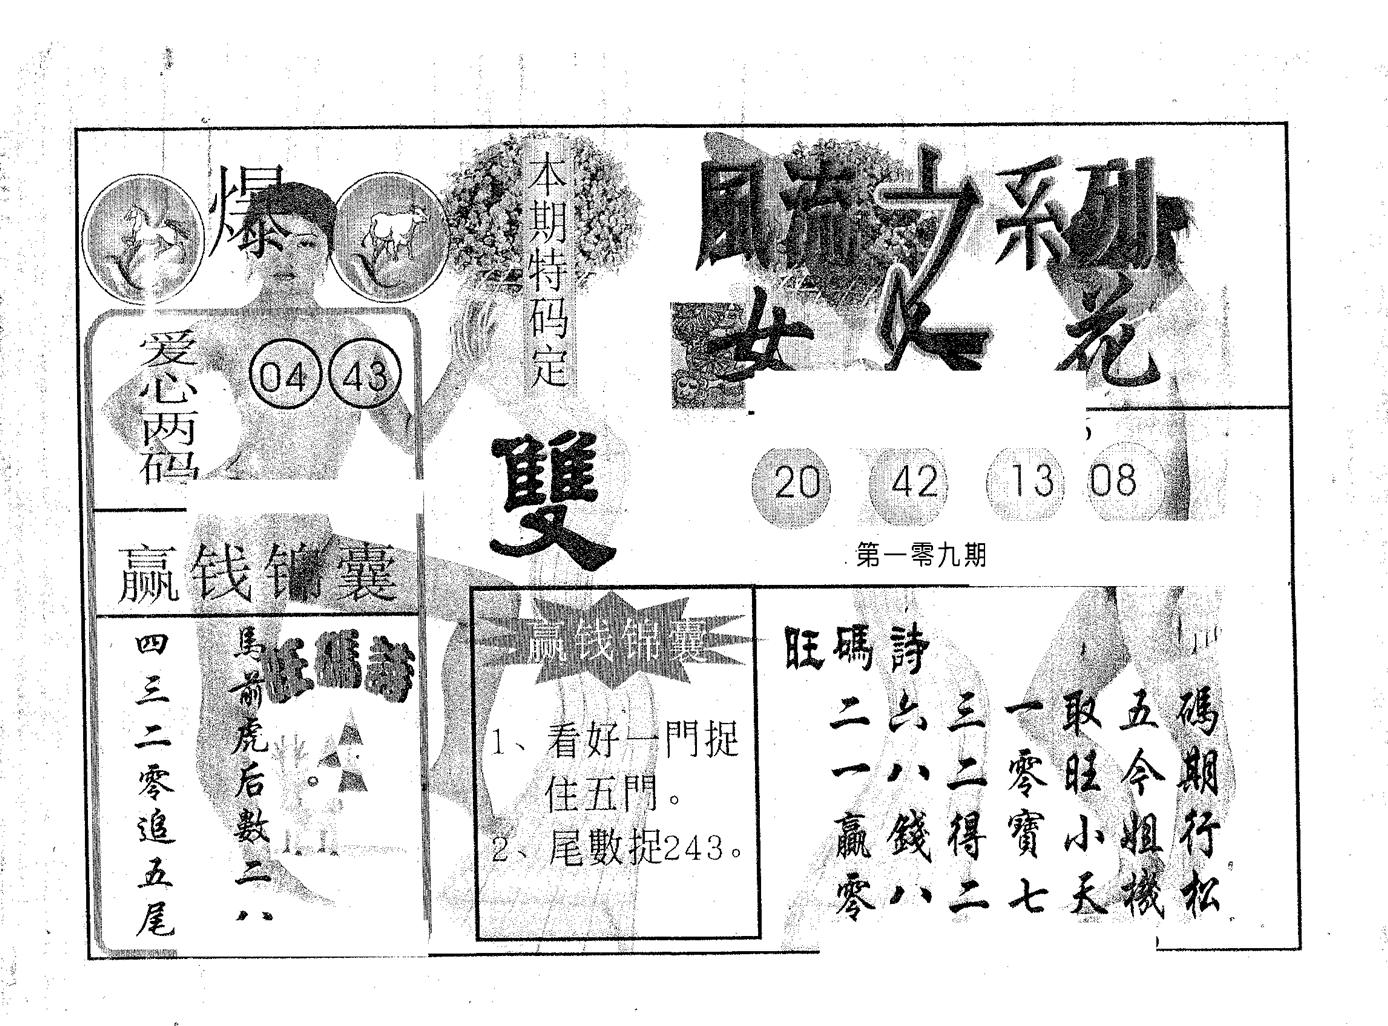 爆
本期特码定
雙
风流之系列
女人花
爱心两码
04 43
20 42 13 08
第一零九期
赢钱锦囊
旺碼詩
馬前虎后数二八
四三二零追五尾
赢钱锦囊
1、看好一門捉
住五門。
2、尾數捉243。
旺碼詩
碼期行松
五今姐機
取旺小天
一零寶七
三二得二
六八錢八
二一贏零